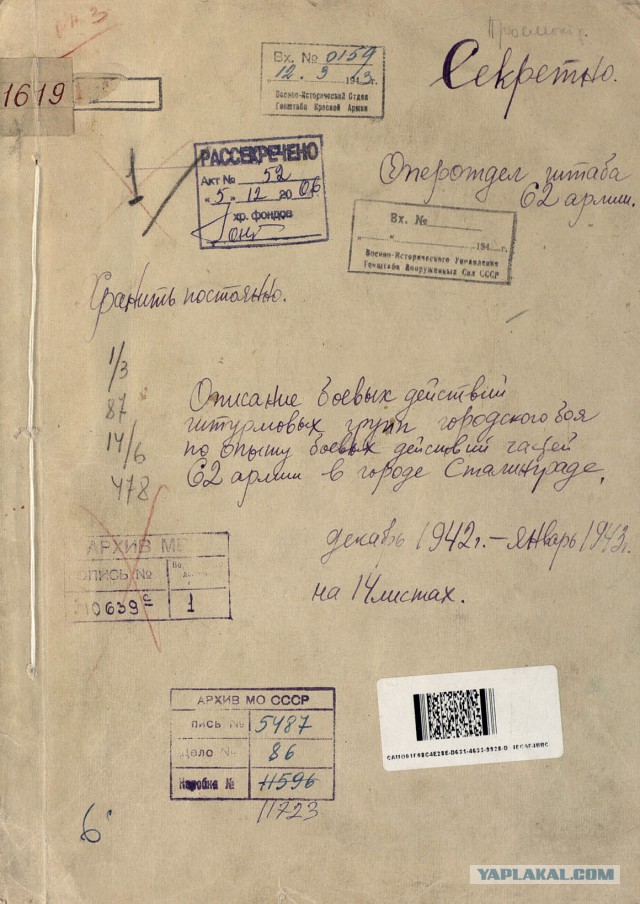 Вх. № 0159
12. 3 1943.
Военно-Исторический Отдел
Генштаба Красной Армии
Секретно.
1619
РАССЕКРЕЧЕНО
Акт № 52
"5" 12 2006
хр. фондов
Оперотдел штаба
62 армии.
Вх. №
"    "    194  г.
Военно-Исторического Управления
Генштаба Вооруженных Сил СССР
1
Хранить постоянно.
1/3
87
14/6
478
Описание боевых действий
штурмовых групп городского боя
по опыту боевых действий частей
62 армии в городе Сталинграде.
декабрь 1942г. – январь 1943г.
на 14 листах.
АРХИВ М
ОПИСЬ №
10639с 1
АРХИВ МО СССР
пись № 5487
Дело № 86
Коробка № 11596
11723
6
YAPLAKAL.COM